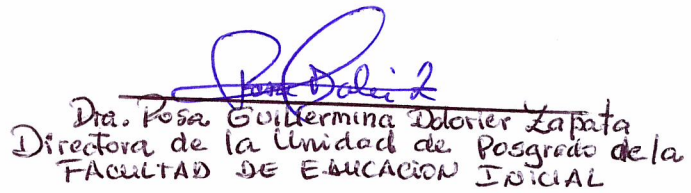 Dra. Rosa Guillermina Dolorier Zapata
Directora de la Unidad de Posgrado de la
FACULTAD DE EDUCACIÓN INICIAL